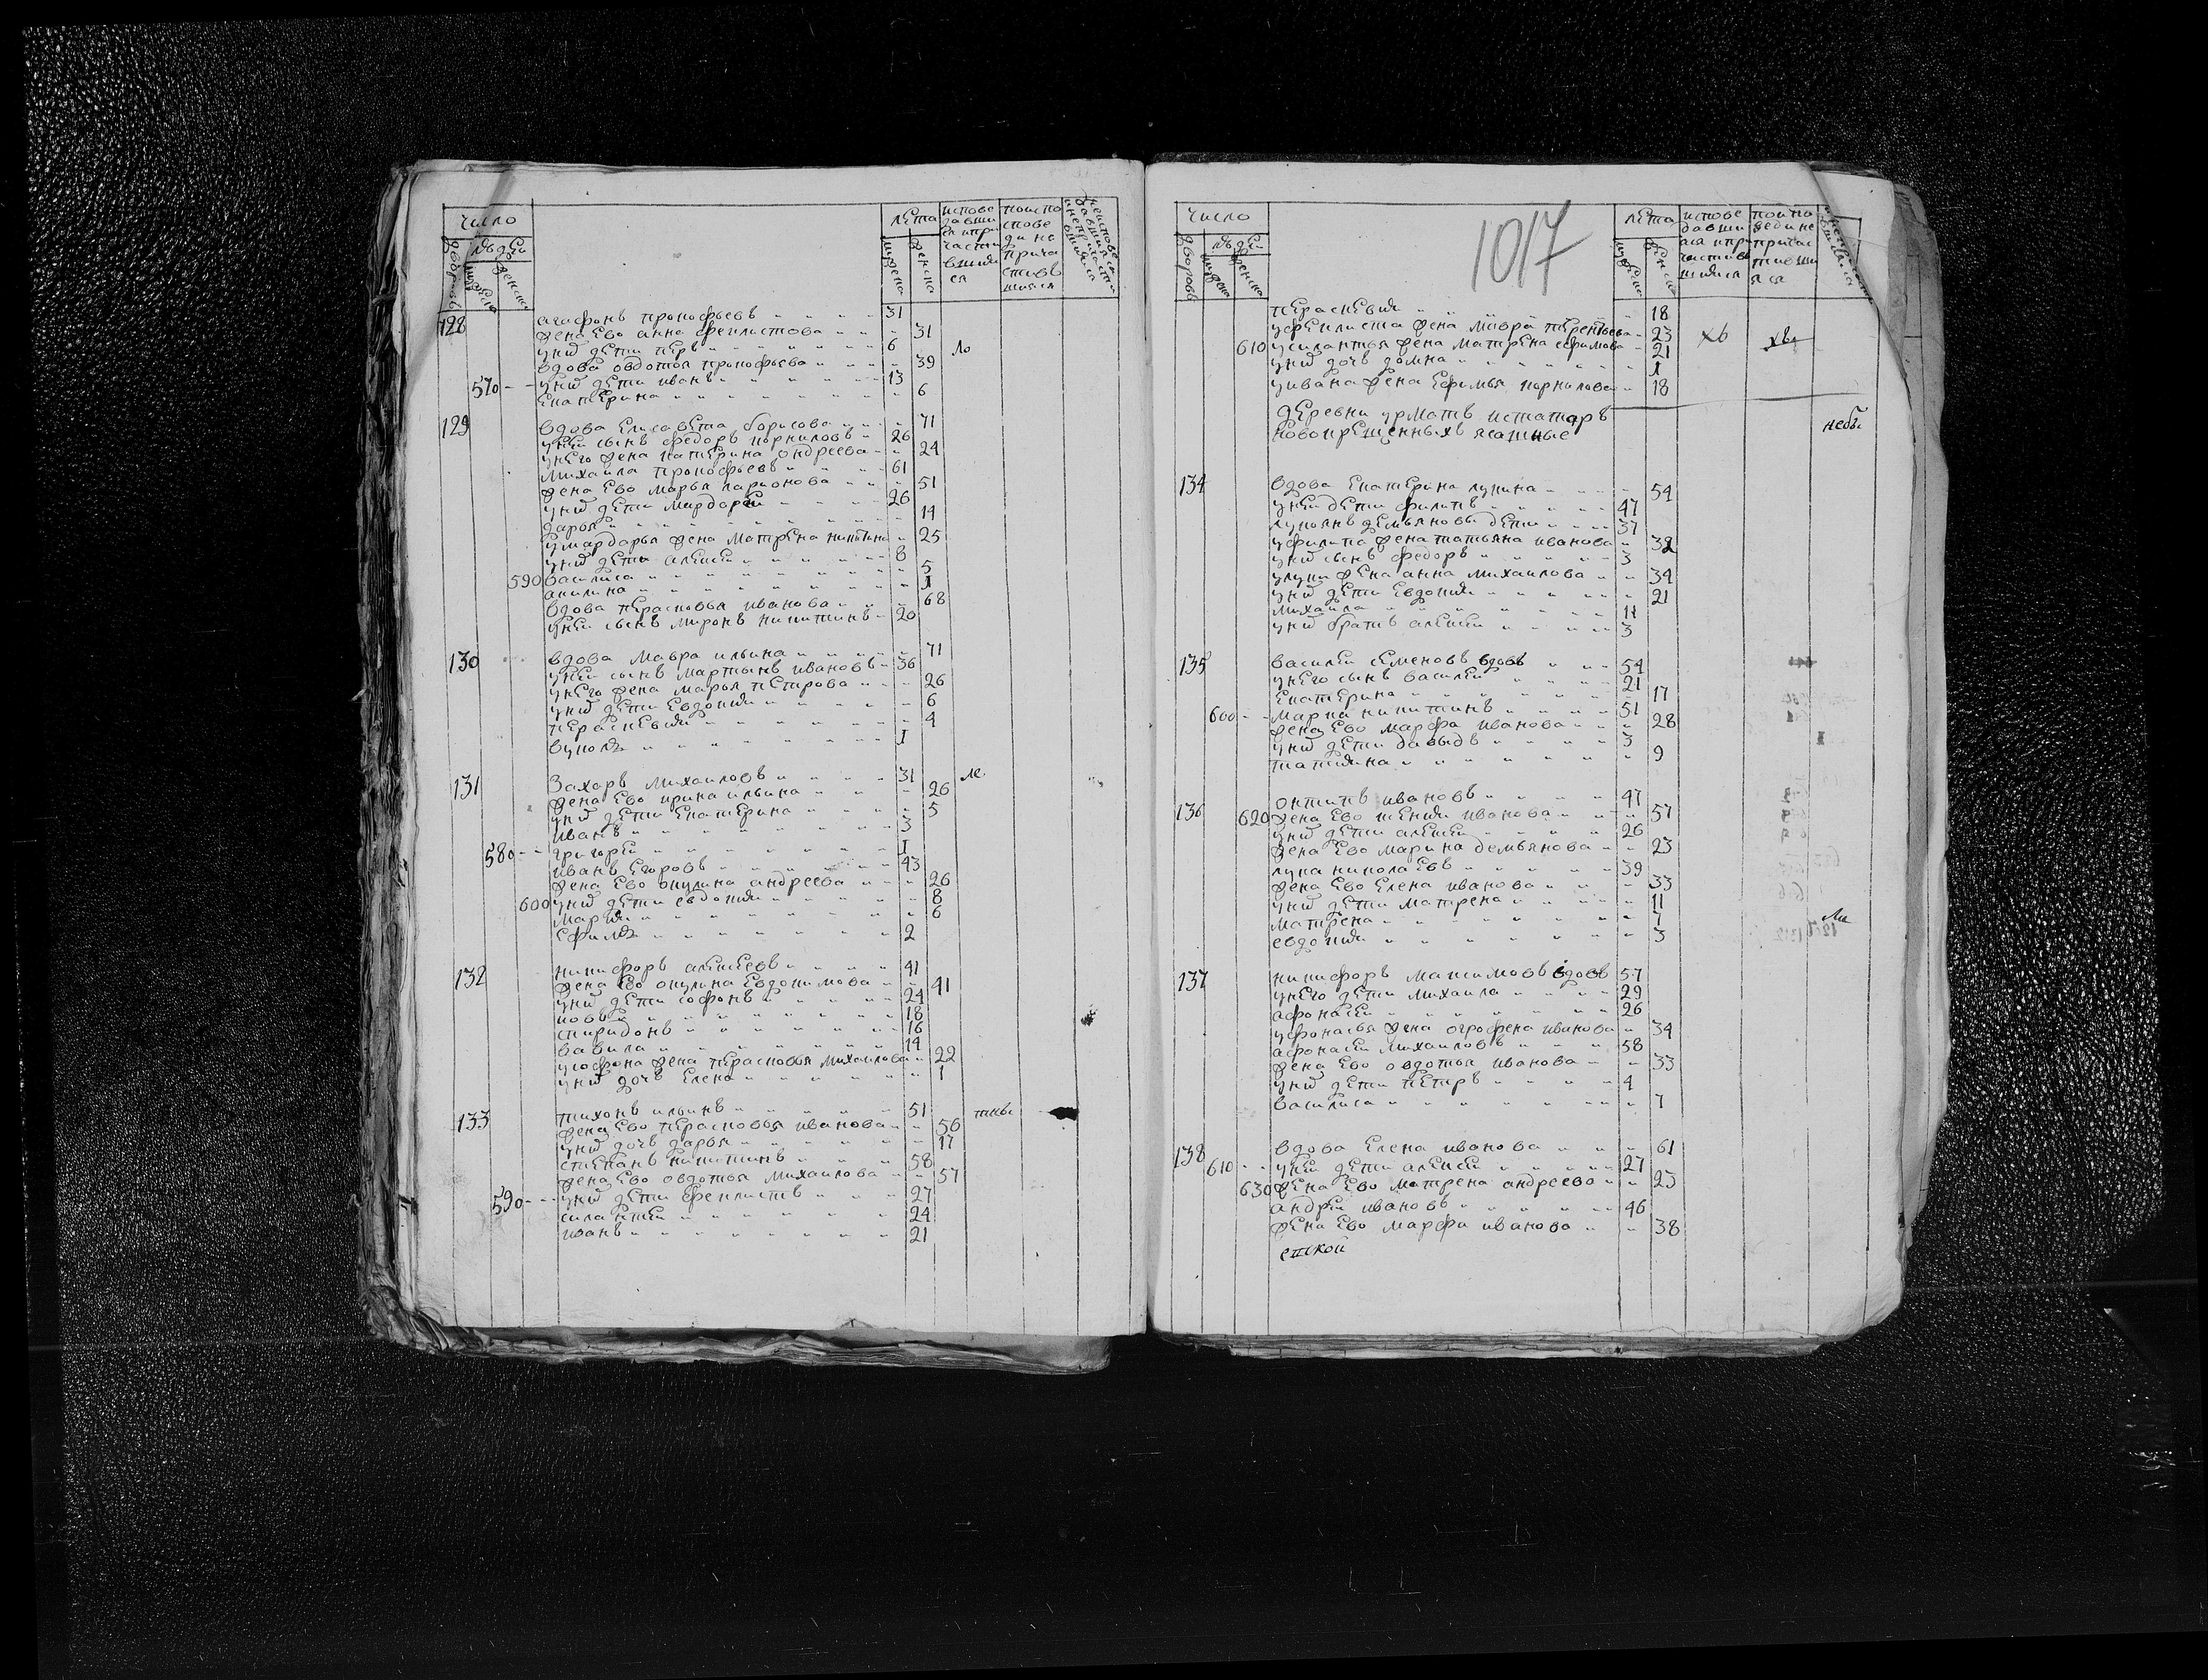 число
лета
128 агафонъ прокофьевъ 31
жена ево анна феклистова 31
у них дети петръ 6
вдова овдотья прокофьева 39
570 у них дети иванъ 13
екатерина 6
129 вдова елисавета борисова 71
у неи сынъ федоръ корниловъ 26
у него жена катерина ондреева 24
михаила прокофьевъ 61
жена ево марья ларионова 51
у них дети мардареи 26
дарья 14
у мардарья жена матрена никитина 25
у них дети алексеи 8
590 василиса 5
акилина 1
вдова парасковья иванова 68
у неи сынъ миронъ никитинъ 20
130 вдова мавра ильина 71
у неи сынъ мартынъ ивановъ 36
у него жена марья петрова 26
у них дети евдокия 6
параскевия 4
вукола 1
131 захаръ михаиловъ 31
жена ево ирина ильина 26
у них дети екатерина 5
иванъ 3
580 григореи 1
иванъ егоровъ 43
жена ево окулина андреева 26
600 у них дети евдокия 8
мария 6
ефимъ 2
132 никифоръ алексеевъ 41
жена ево окулина евдокимова 41
у них дети софонъ 24
иовъ 18
спиридонъ 16
вавила 14
у софона жена парасковья михаилова 22
у них дочь елена 1
133 тихонъ ильинъ 51
жена ево парасковья иванова 50
у них дочь дарья 17
степанъ никитинъ 58
жена ево овдотья михаилова 57
590 у них дети феклистъ 27
силантеи 24
иванъ 21
1017
число
лета
параскевия 18
у феклиста жена мавра терентьева 23
610 у силантья жена матрена ефимова 21
у них дочь домна 1
у ивана жена ефимья корнилова 18
деревни урматъ истатаръ
новокрещенныхъ ясашные
134 вдова екатерина лукина 54
у неи дети филипъ 47
лукоянъ демьяновы дети 37
у филипа жена татьяна иванова 32
у них сынъ федоръ 3
у луки жена анна михаилова 34
у них дети евдокия 21
михаила 11
у них братъ алексеи 3
135 василеи семеновъ вдовъ 54
у него сынъ василеи 21
екатерина 17
600 марка никитинъ 51
жена ево марфа иванова 28
у них дети давыдъ 3
татияна 9
136 октитъ ивановъ 47
620 жена ево ксения иванова 57
у них дети алексеи 26
жена ево марина демьянова 23
лука николаевъ 39
жена ево елена иванова 33
у них дети матрена 11
матрена 7
евдокия 3
137 никифоръ максимовъ вдовъ 57
у него дети михаила 29
афонасеи 26
у афонасья жена огрофена иванова 34
афонасеи михаиловъ 58
жена ево овдотья иванова 33
у них дети петръ 4
василиса 7
138 вдова елена иванова 61
610 у неи дети алексеи 27
630 жена ево матрена андреева 23
андреи ивановъ 46
жена ево марфа иванова 38